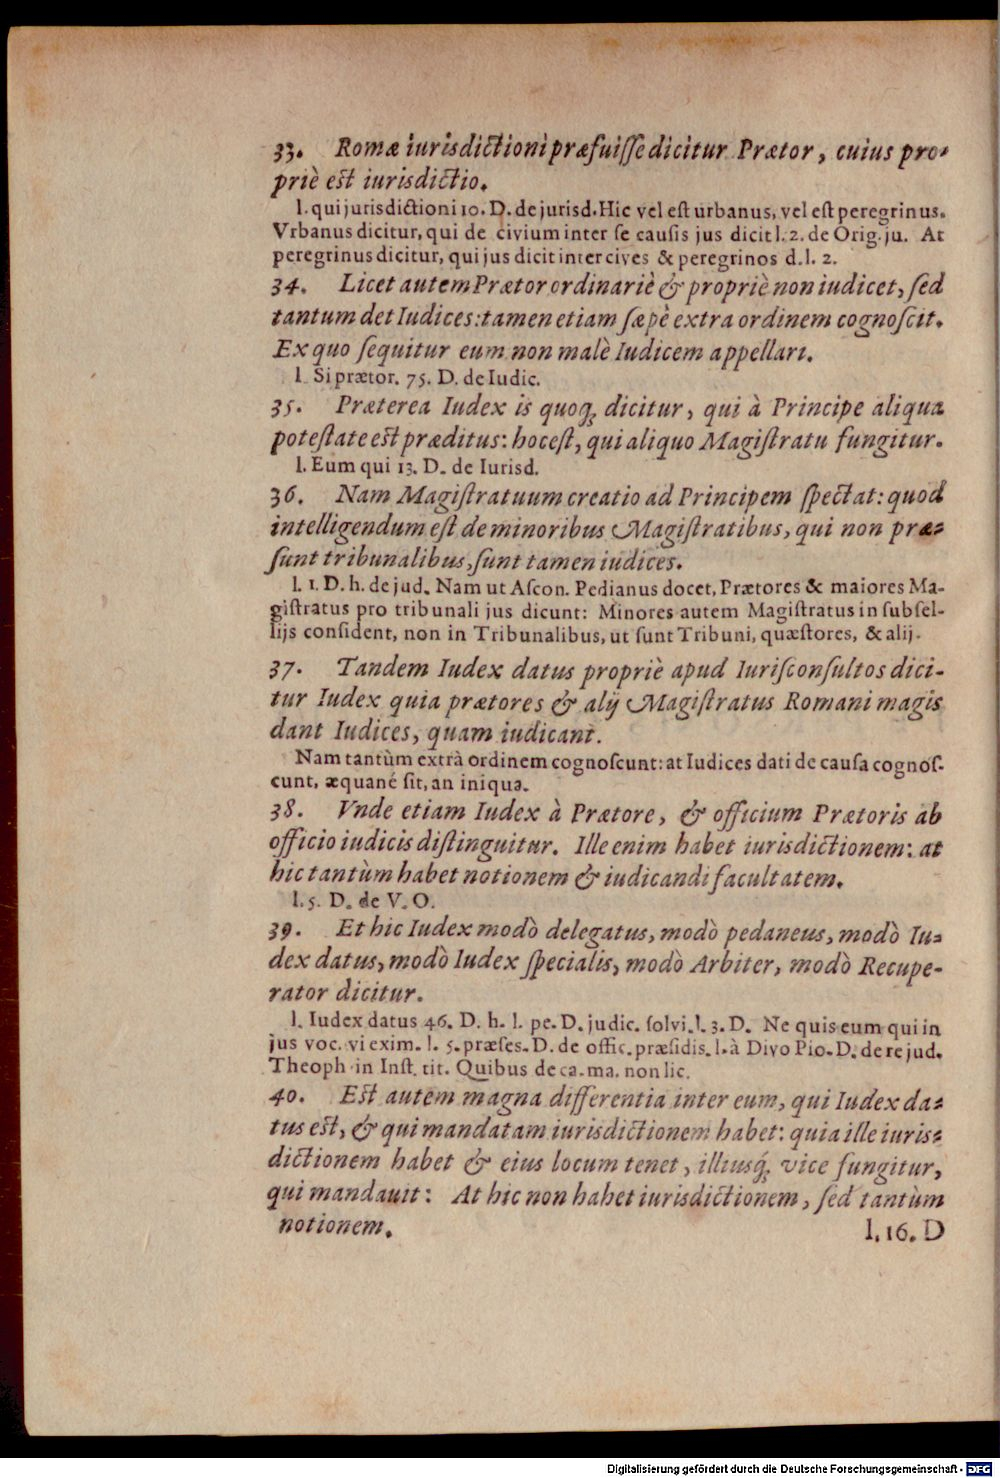 33. Romæ iurisdictioni præfuiſſe dicitur Prætor, cuius pro-
priè est iurisdictio.
l. qui jurisdictioni 10. D. de jurisd. Hic vel eſt urbanus, vel eſt peregrinus.
Vrbanus dicitur, qui de civium inter ſe cauſis jus dicit l. 2. de Orig. ju. At
peregrinus dicitur, qui jus dicit inter cives & peregrinos d. l. 2.
34. Licet autem Prætor ordinariè & propriè non iudicet, ſed
tantum det Iudices: tamen etiam ſæpè extra ordinem cognoſcit.
Ex quo ſequitur eum non malè Iudicem appellari.
l Si prætor. 75. D. de Iudic.
35. Præterea Iudex is quoq; dicitur, qui à Principe aliqua
poteſtate est præditus: hoc eſt, qui aliquo Magiſtratu fungitur.
l. Eum qui 13. D. de Iurisd.
36. Nam Magiſtratuum creatio ad Principem ſpectat: quod
intelligendum eſt de minoribus Magiſtratibus, qui non præ-
ſunt tribunalibus, ſunt tamen iudices.
l. 1. D. h. de jud. Nam ut Aſcon. Pedianus docet, Prætores & maiores Ma-
giſtratus pro tribunali jus dicunt: Minores autem Magiſtratus in ſubſel-
lijs conſident, non in Tribunalibus, ut ſunt Tribuni, quæſtores, & alij.
37. Tandem Iudex datus propriè apud Iuriſconſultos dici-
tur Iudex quia prætores & alij Magiſtratus Romani magis
dant Iudices, quam iudicant.
Nam tantùm extrà ordinem cognoſcunt: at Iudices dati de cauſa cognoſ-
cunt, æquané ſit, an iniqua.
38. Vnde etiam Iudex à Prætore, & officium Prætoris ab
officio iudicis diſtinguitur. Ille enim habet iurisdictionem: at
hic tantùm habet notionem & iudicandi facultatem.
l. 5. D. de V. O.
39. Et hic Iudex modò delegatus, modò pedaneus, modò Iu-
dex datus, modò Iudex ſpecialis, modò Arbiter, modò Recupe-
rator dicitur.
l. Iudex datus 46. D. h. l. pe. D. judic. ſolvi. l. 3. D. Ne quis eum qui in
jus voc. vi exim. l. 5. præſes. D. de offic. præſidis. l. à Divo Pio. D. de re jud.
Theoph in Inſt. tit. Quibus de ca. ma. non lic.
40. Est autem magna differentia inter eum, qui Iudex da-
tus est, & qui mandatam iurisdictionem habet: quia ille iuris-
dictionem habet & eius locum tenet, illiusq́; vice fungitur,
qui mandauit: At hic non habet iurisdictionem, ſed tantùm
notionem.
l. 16. D
Digitalisierung gefördert durch die Deutsche Forschungsgemeinschaft - DFG